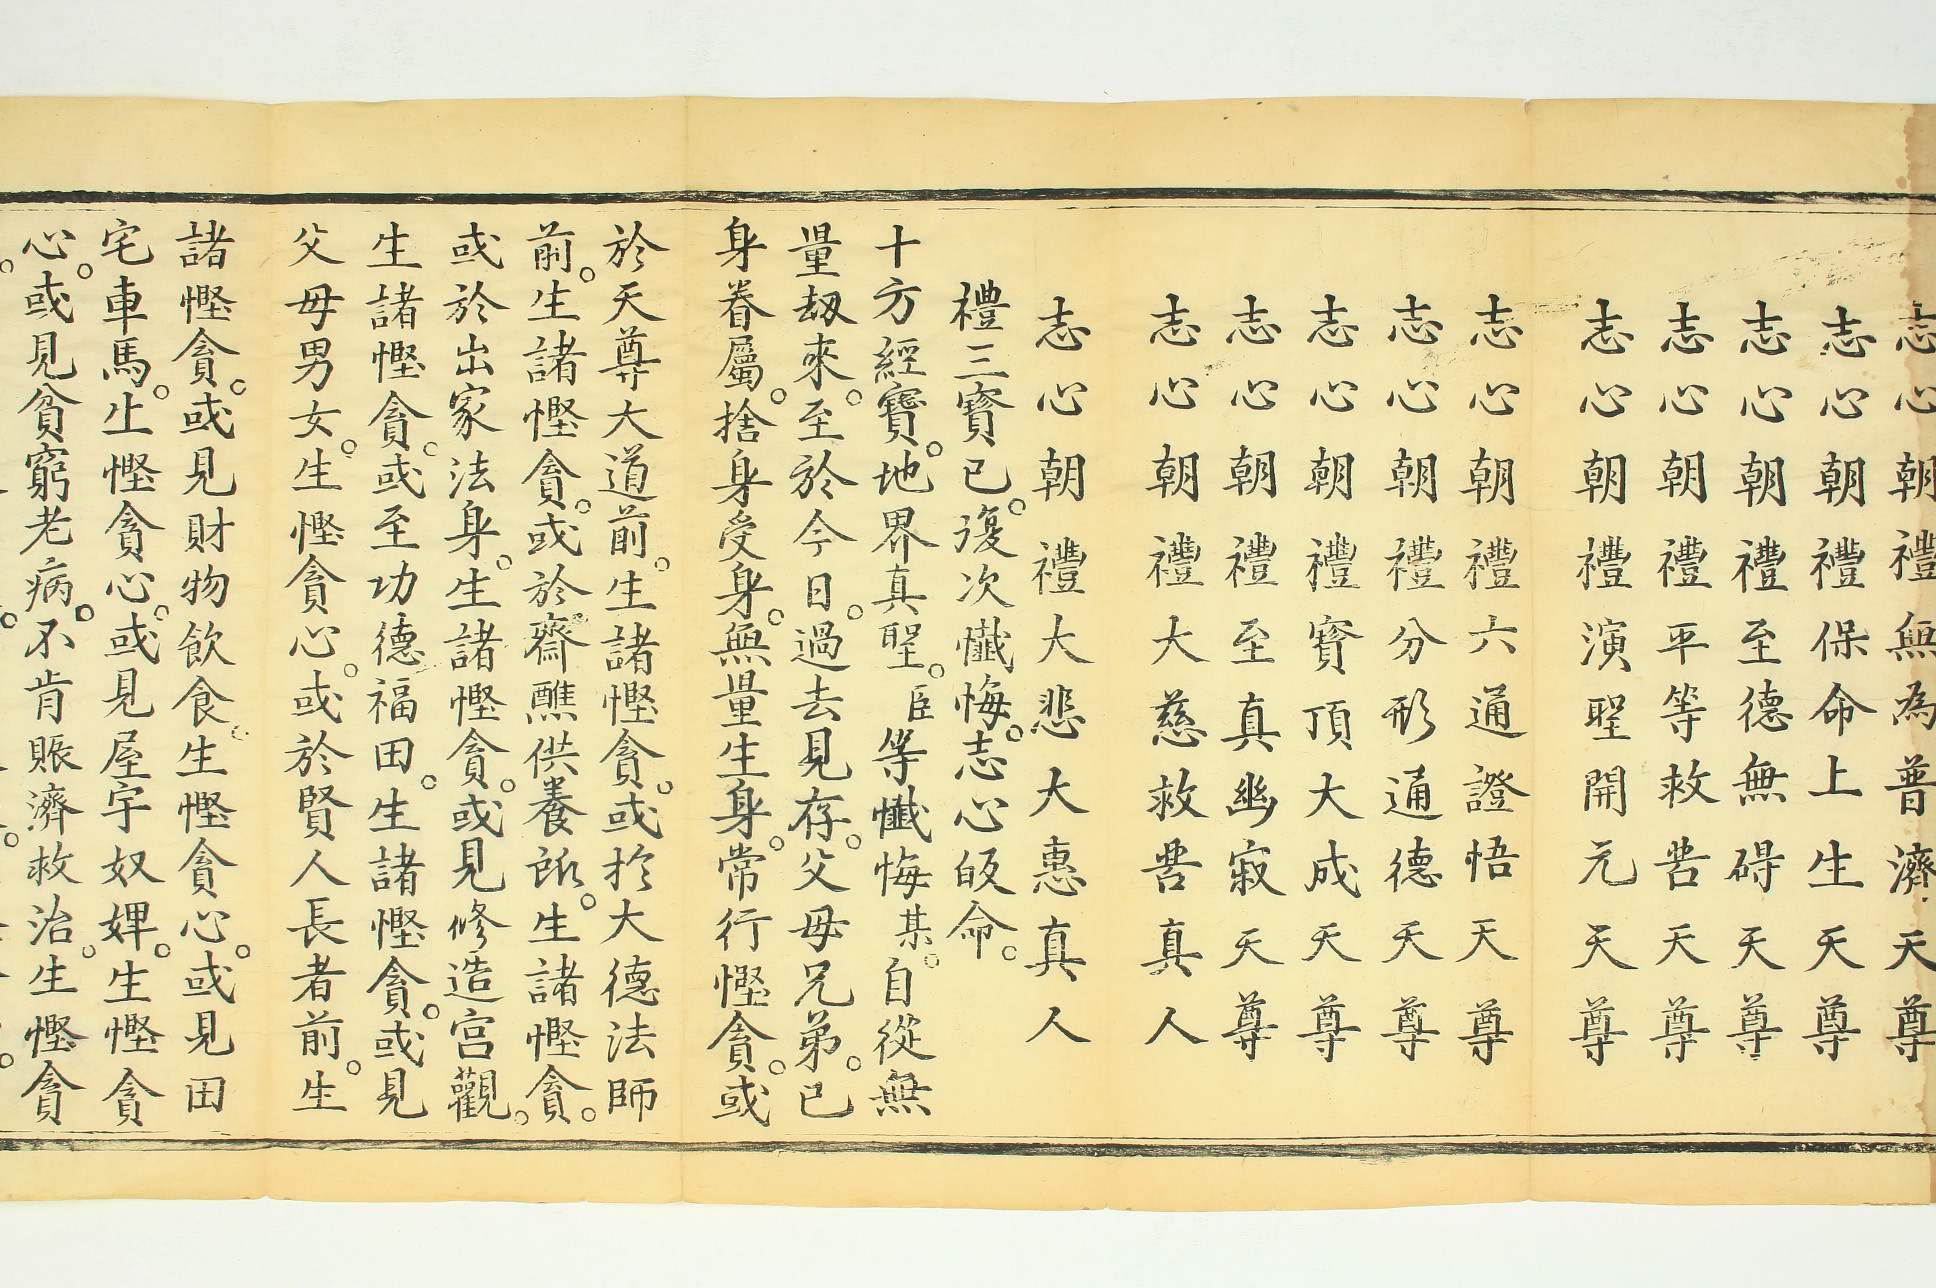 志心朝禮無為普濟天尊
志心朝禮保命上生天尊
志心朝禮至德無碍天尊
志心朝禮平等救苦天尊
志心朝禮演聖開元天尊
志心朝禮六通證悟天尊
志心朝禮分形通德天尊
志心朝禮寶頂大成天尊
志心朝禮至真幽寂天尊
志心朝禮大慈救苦真人
志心朝禮大悲大惠真人
禮三寶已。復次懺悔。志心皈命。
十方經寶。地界真聖。臣等懺悔某。自從無
量劫來。至於今日。過去見存。父母兄弟。已
身眷屬。捨身受身。無量生身。常行慳貪。或
於天尊大道前。生諸慳貪。或於大德法師
前。生諸慳貪。或於齋醮供養所。生諸慳貪。
或於出家法身。生諸慳貪。或見修造宮觀。
生諸慳貪。或至功德福田。生諸慳貪。或見
父母男女。生慳貪心。或於賢人長者前。生
諸慳貪。或見財物飲食。生慳貪心。或見田
宅車馬。生慳貪心。或見屋宇奴婢。生慳貪
心。或見貧窮老病。不肯賑濟救治。生慳貪